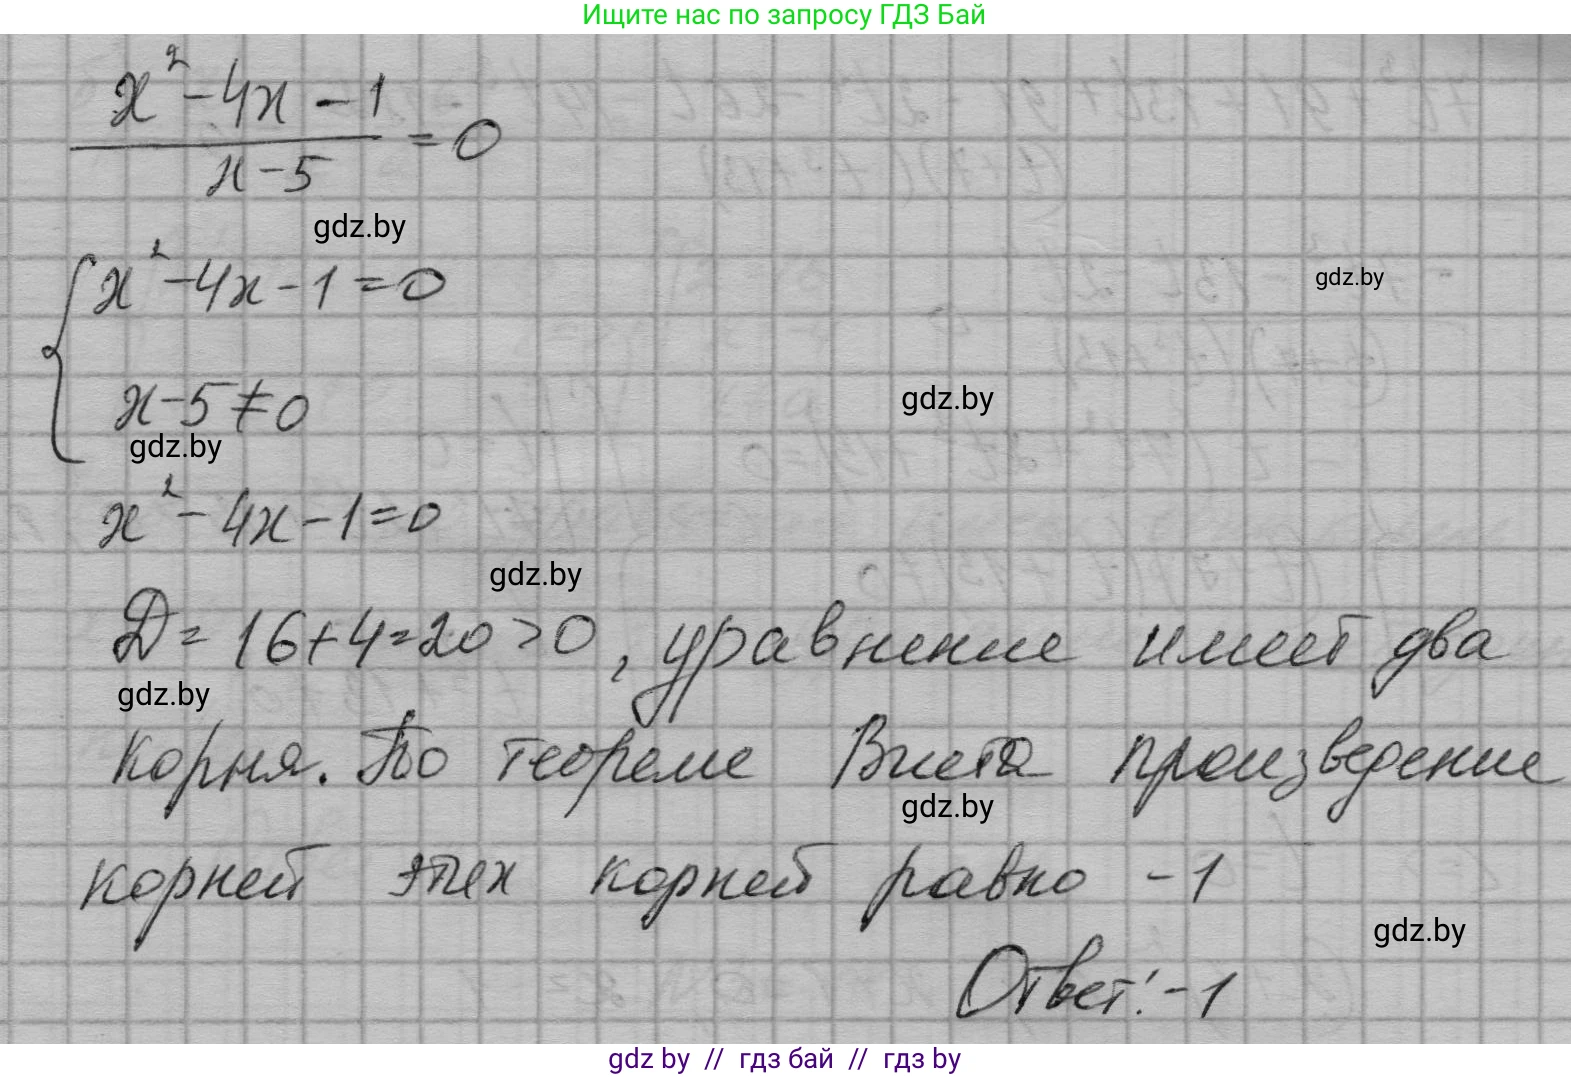 Ищите нас по запросу ГДЗ Бай
x² - 4x - 1
x - 5
= 0
gdz.by
x² - 4x - 1 = 0
gdz.by
x - 5 ≠ 0
gdz.by
gdz.by
x² - 4x - 1 = 0
gdz.by
D = 16 + 4 = 20 > 0, уравнение имеет два
gdz.by
корня. По теореме Виета произведение
gdz.by
корней этих корней равно -1
gdz.by
Ответ: -1
gdz by // гдз бай // гдз by